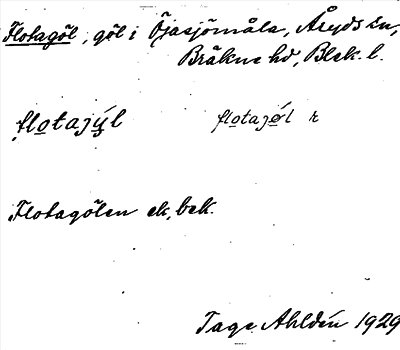 Flotagöl, göl i Öjasjömåla, Åryds sn,
Bräkne hd, Blek. l.
flotajý̨l flotajǿl r
Flotagölen ek, bek.
Tage Ahldén 1929